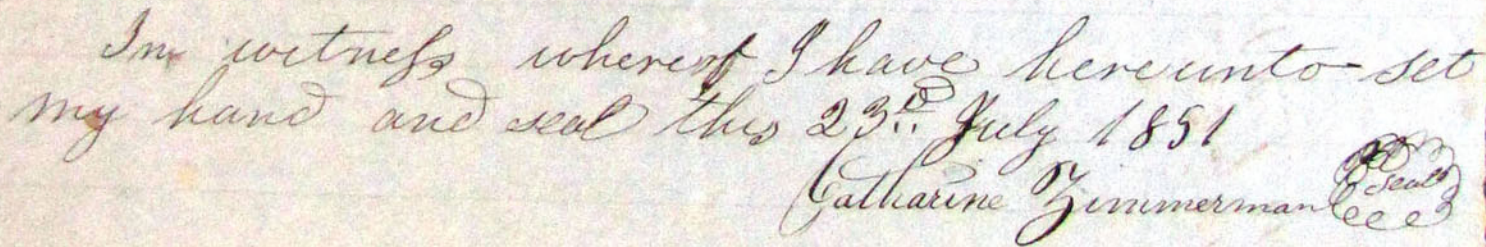 In witness whereof I have hereunto set
my hand and seal this 23rd July 1851
Catharine Zimmerman seal